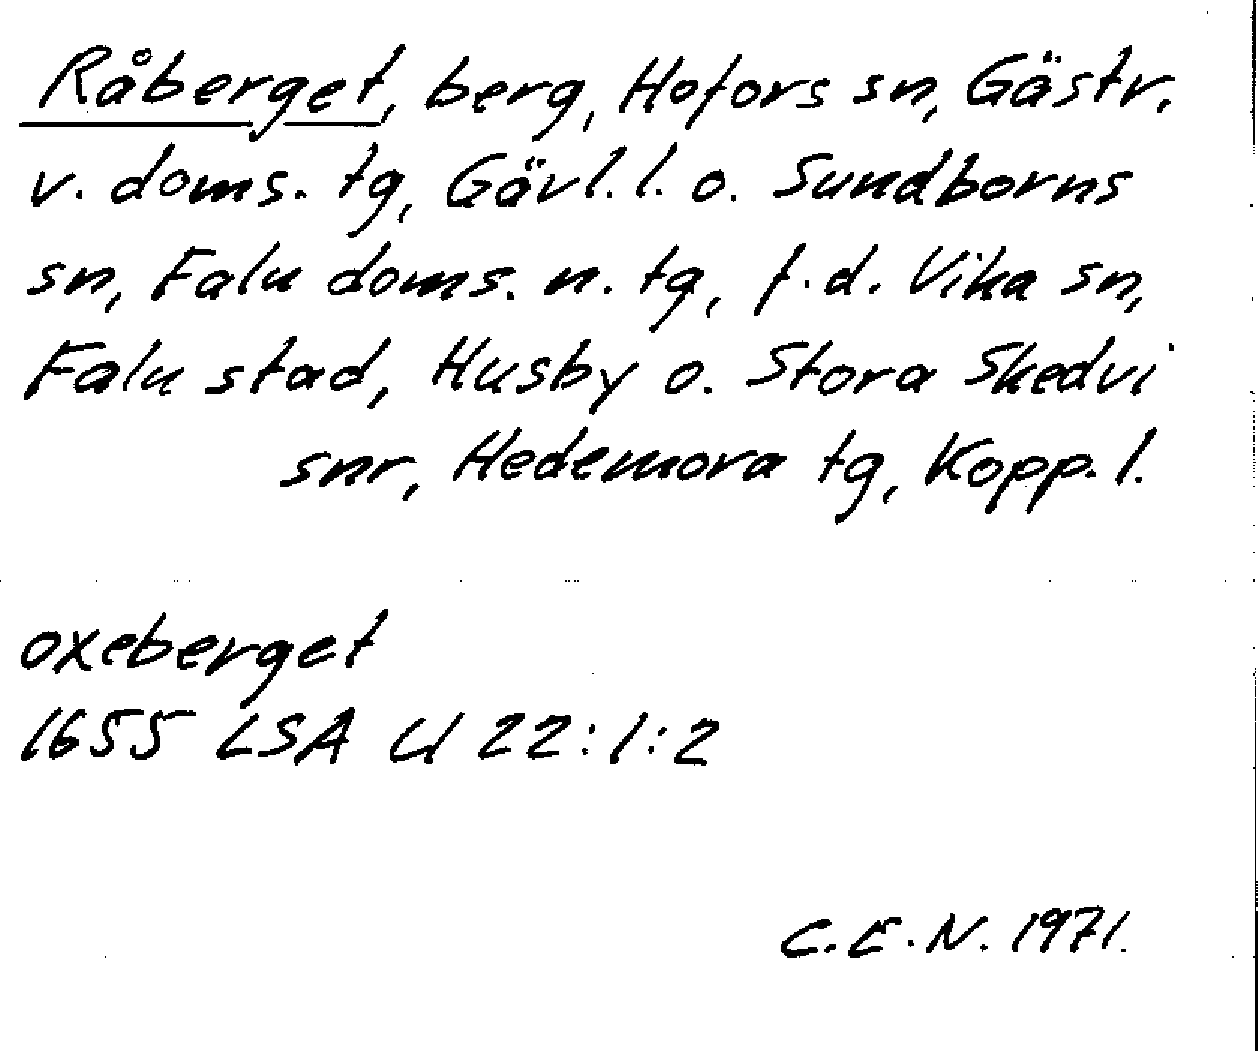 Råberget, berg, Hofors sn, Gästr.
v. doms. tg, Gävl. l. o. Sundborns
sn, Falu doms. n. tg, f.d. Vika sn,
Falu stad, Husby o. Stora Skedvi
snr, Hedemora tg, Kopp. l.
oxeberget
1655 LSA U 22:1:2
C.E.N. 1971.